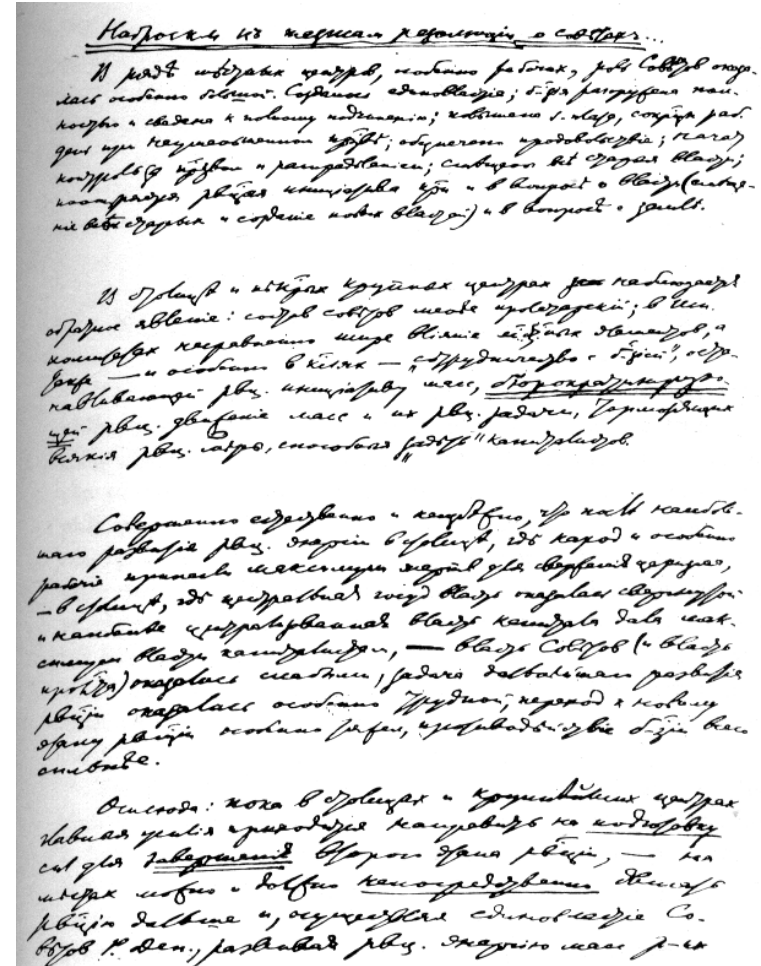 Наброски къ тезисам резолюціи о совѣтах...
В рядѣ мѣстных центров, особенно рабочих, роль Совѣтов оказа-
лась особенно большой. Создано единовластіе; б-зія разоружена пол-
ностью и сведена к полному подчиненію; повышена з. плата, сокращ. раб.
день при неуменьшенном произв; обезпечено продовольствіе; начат
контроль за произвом и распредѣленіем; смѣщены всѣ старыя власти;
поощряется рвцная иниціатива кр-н и в вопросѣ о власти (смѣще-
ніе всѣх старых и созданіе новых властей) и в вопросѣ о землѣ.
В столицѣ и нѣкрых крупных центрах наблюдается
обратное явленіе: состав совѣтов менѣе пролетарскій; в Исп.
комитетах несравненно шире вліяніе м.-бных элементов, а
также — и особенно в к-сіях — „сотрудничество с б-зіей", оста-
навливающей рвц. иниціативу масс, бюрократизирую-
щей рвц. движеніе масс и их рвц. задачи, тормозящих
всякія рвц. мѣры, способныя „задѣть" капиталистов.
Совершенно естественно и неизбѣжно, что послѣ наиболь-
шаго развитія рвц. энергіи в столицѣ, гдѣ народ и особенно
рабочіе принесли максимум жертв для сверженія царизма,
— в столицѣ, гдѣ центральная госуд власть оказалась свергнутой
и наиболѣе централизованная власть капитала дала мак-
симум власти капиталистам, — власть Совѣтов (и власть
прол-та) оказалась слабыми, задача дальнѣйшаго развитія
рвціи оказалась особенно трудной, переход к новому
этапу рвціи особенно тяжел, противодѣйствіе б-зіи всего
сильнѣе.
Отсюда: пока в столицах и крупнѣйших центрах
главныя усилія приходится направить на подготовку
сил для завершенія второго этапа рвціи, — на
мѣстах можно и должно непосредственно двигать
рвцію дальше и, осуществляя единовластіе Со-
вѣтов Р. Деп., развивая рвц. энергію масс р-их